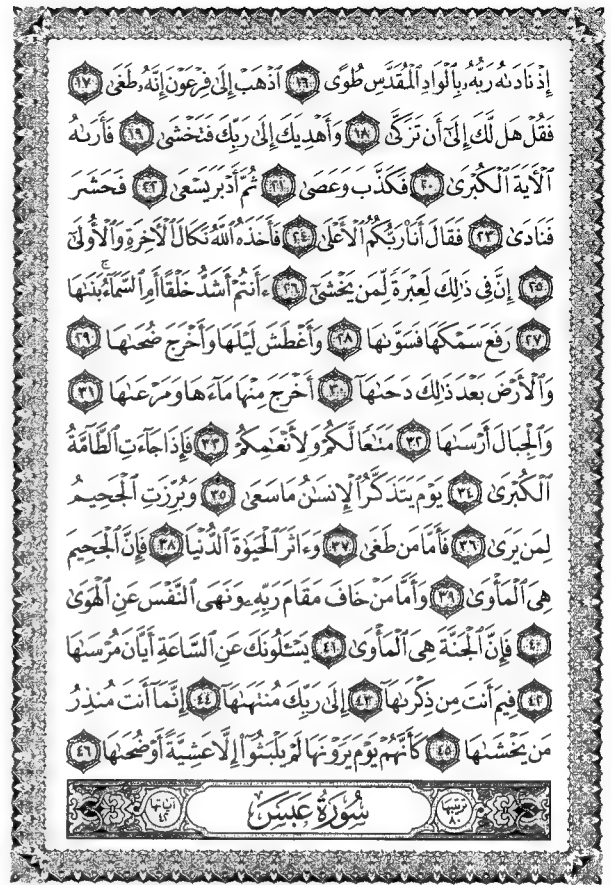 إِذۡ نَادَىٰهُ رَبُّهُۥ بِٱلۡوَادِ ٱلۡمُقَدَّسِ طُوًى ١٦ ٱذۡهَبۡ إِلَىٰ فِرۡعَوۡنَ إِنَّهُۥ طَغَىٰ ١٧
فَقُلۡ هَل لَّكَ إِلَىٰٓ أَن تَزَكَّىٰ ١٨ وَأَهۡدِيَكَ إِلَىٰ رَبِّكَ فَتَخۡشَىٰ ١٩ فَأَرَىٰهُ
ٱلۡأٓيَةَ ٱلۡكُبۡرَىٰ ٢٠ فَكَذَّبَ وَعَصَىٰ ٢١ ثُمَّ أَدۡبَرَ يَسۡعَىٰ ٢٢ فَحَشَرَ
فَنَادَىٰ ٢٣ فَقَالَ أَنَا۠ رَبُّكُمُ ٱلۡأَعۡلَىٰ ٢٤ فَأَخَذَهُ ٱللَّهُ نَكَالَ ٱلۡأٓخِرَةِ وَٱلۡأُولَىٰٓ
٢٥ إِنَّ فِي ذَٰلِكَ لَعِبۡرَةٗ لِّمَن يَخۡشَىٰٓ ٢٦ ءَأَنتُمۡ أَشَدُّ خَلۡقًا أَمِ ٱلسَّمَآءُۚ بَنَىٰهَا
٢٧ رَفَعَ سَمۡكَهَا فَسَوَّىٰهَا ٢٨ وَأَغۡطَشَ لَيۡلَهَا وَأَخۡرَجَ ضُحَىٰهَا ٢٩
وَٱلۡأَرۡضَ بَعۡدَ ذَٰلِكَ دَحَىٰهَآ ٣٠ أَخۡرَجَ مِنۡهَا مَآءَهَا وَمَرۡعَىٰهَا ٣١
وَٱلۡجِبَالَ أَرۡسَىٰهَا ٣٢ مَتَٰعٗا لَّكُمۡ وَلِأَنۡعَٰمِكُمۡ ٣٣ فَإِذَا جَآءَتِ ٱلطَّآمَّةُ
ٱلۡكُبۡرَىٰ ٣٤ يَوۡمَ يَتَذَكَّرُ ٱلۡإِنسَٰنُ مَا سَعَىٰ ٣٥ وَبُرِّزَتِ ٱلۡجَحِيمُ
لِمَن يَرَىٰ ٣٦ فَأَمَّا مَن طَغَىٰ ٣٧ وَءَاثَرَ ٱلۡحَيَوٰةَ ٱلدُّنۡيَا ٣٨ فَإِنَّ ٱلۡجَحِيمَ
هِيَ ٱلۡمَأۡوَىٰ ٣٩ وَأَمَّا مَنۡ خَافَ مَقَامَ رَبِّهِۦ وَنَهَى ٱلنَّفۡسَ عَنِ ٱلۡهَوَىٰ
٤٠ فَإِنَّ ٱلۡجَنَّةَ هِيَ ٱلۡمَأۡوَىٰ ٤١ يَسۡـَٔلُونَكَ عَنِ ٱلسَّاعَةِ أَيَّانَ مُرۡسَىٰهَا
٤٢ فِيمَ أَنتَ مِن ذِكۡرَىٰهَآ ٤٣ إِلَىٰ رَبِّكَ مُنتَهَىٰهَآ ٤٤ إِنَّمَآ أَنتَ مُنذِرُ
مَن يَخۡشَىٰهَا ٤٥ كَأَنَّهُمۡ يَوۡمَ يَرَوۡنَهَا لَمۡ يَلۡبَثُوٓاْ إِلَّا عَشِيَّةً أَوۡ ضُحَىٰهَا ٤٦
ترتيبها ٨٠ سُورَةُ عَبَسَ آياتها ٤٢